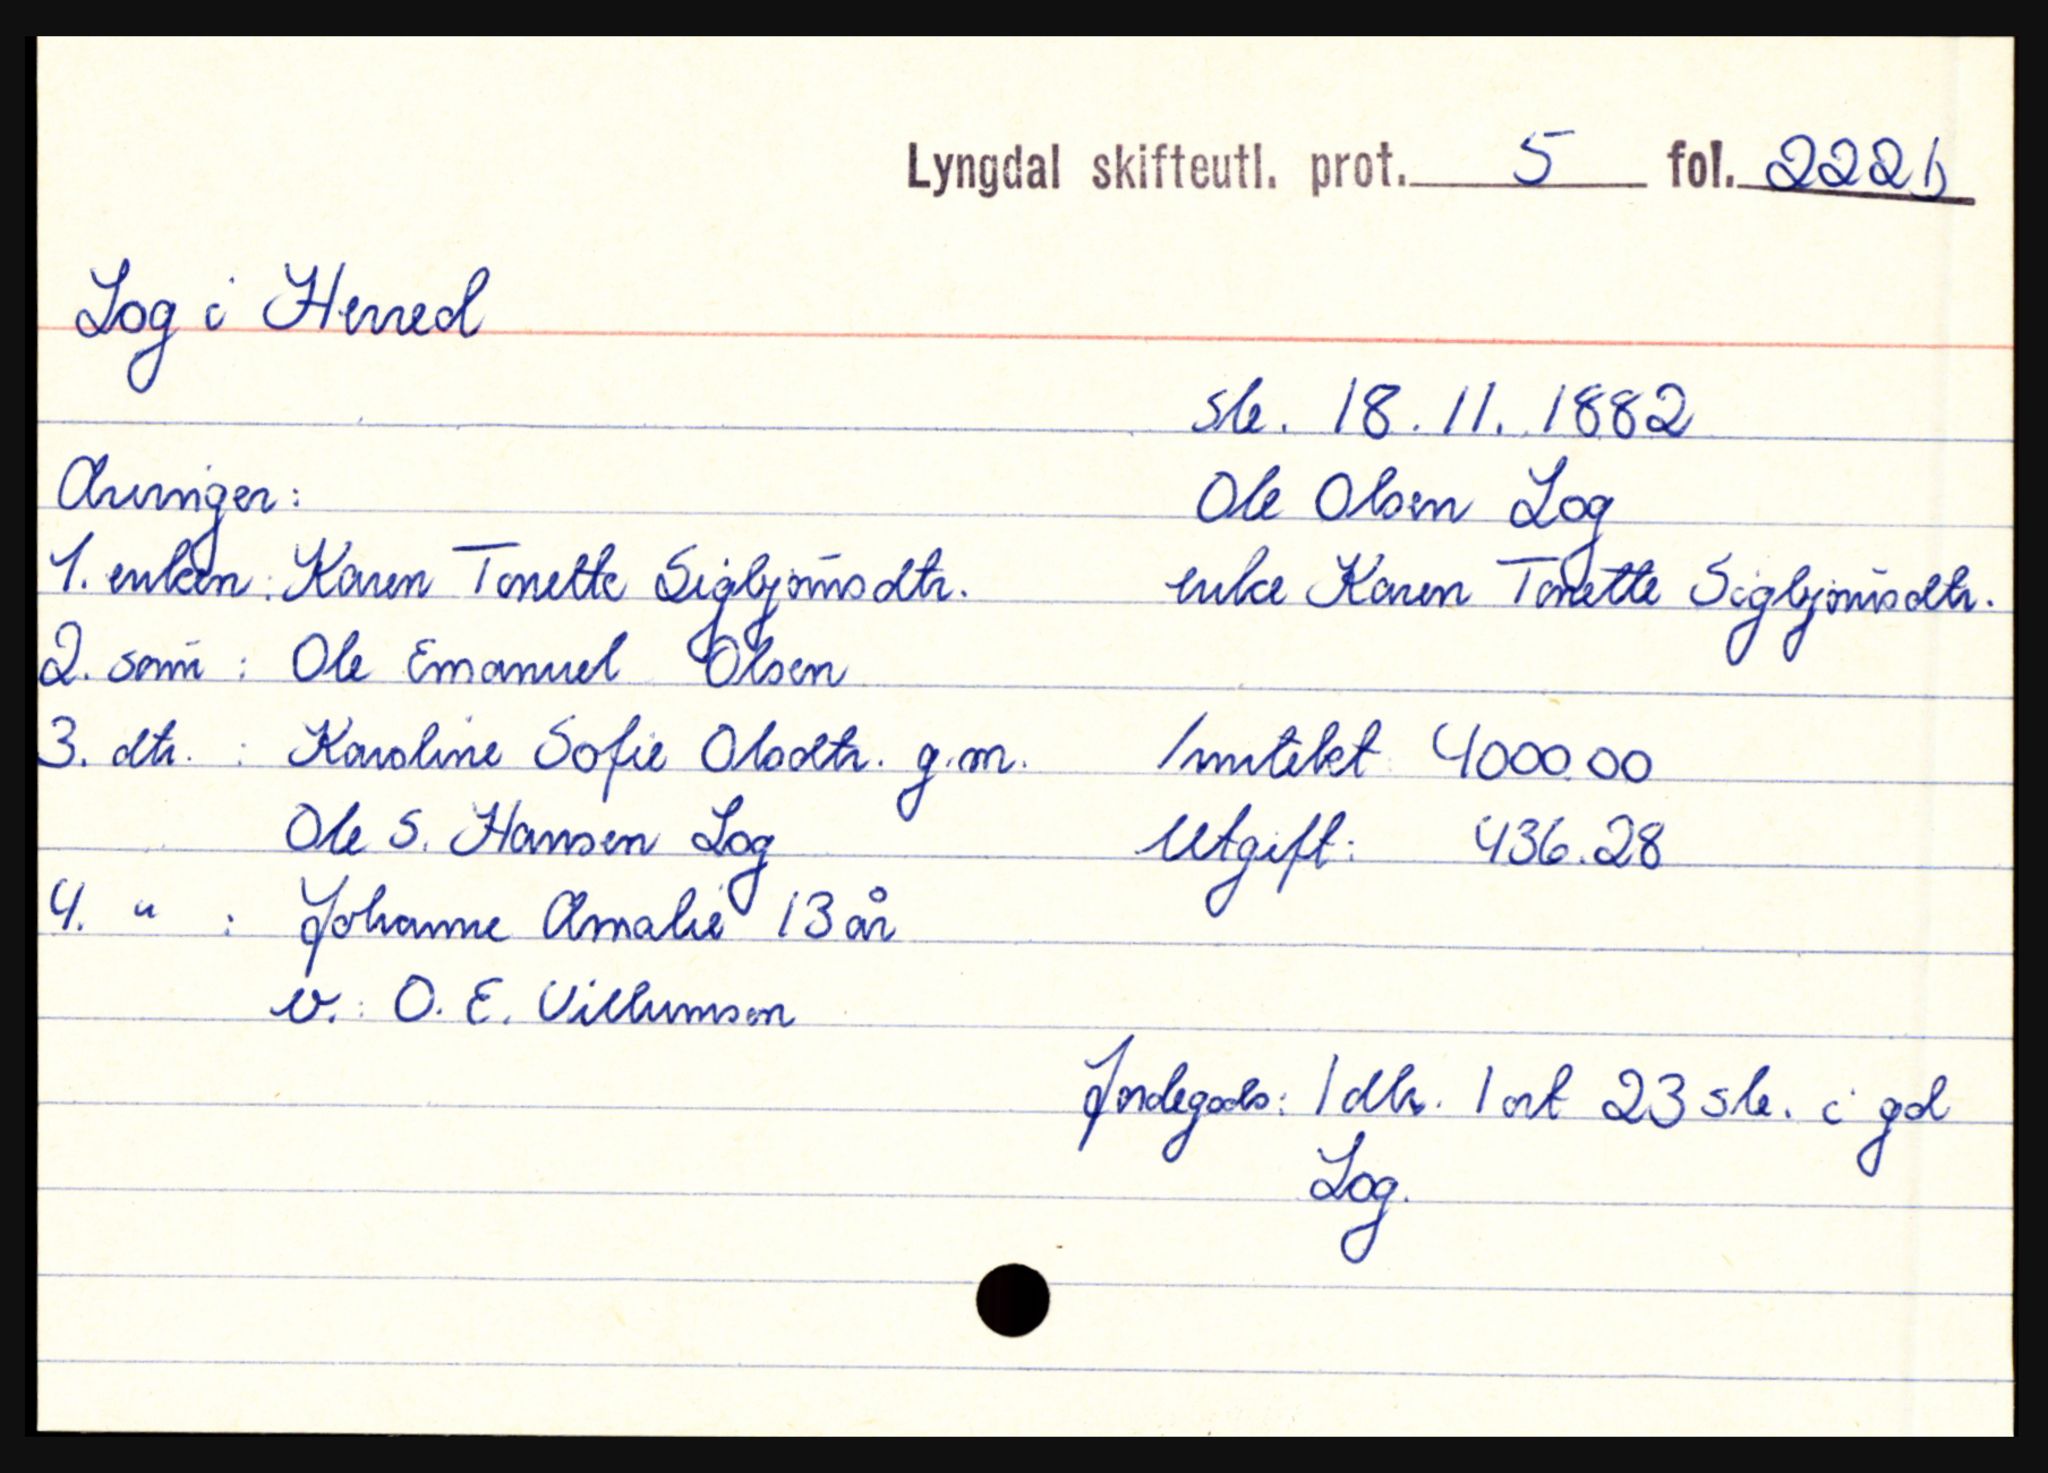 Lyngdal skifteutl. prot. 5 fol. 222b
Log i Herred
sk. 18.11.1882
Arvinger:
Ole Olsen Log
1. enken: Karen Tonette Sigbjørnsdtr.
enke Karen Tonette Sigbjørnsdtr.
2. sønn: Ole Emanuel Olsen
3. dtr. : Karoline Sofie Olsdtr. g.m.
Inntekt: 4000.00
Ole S. Hansen Log
Utgift: 436.28
4. " : Johanne Amalie 13 år
v.: O. E. Villumsen
Jordegods: 1 dlr. 1 ort 23 sk. i gd
Log.